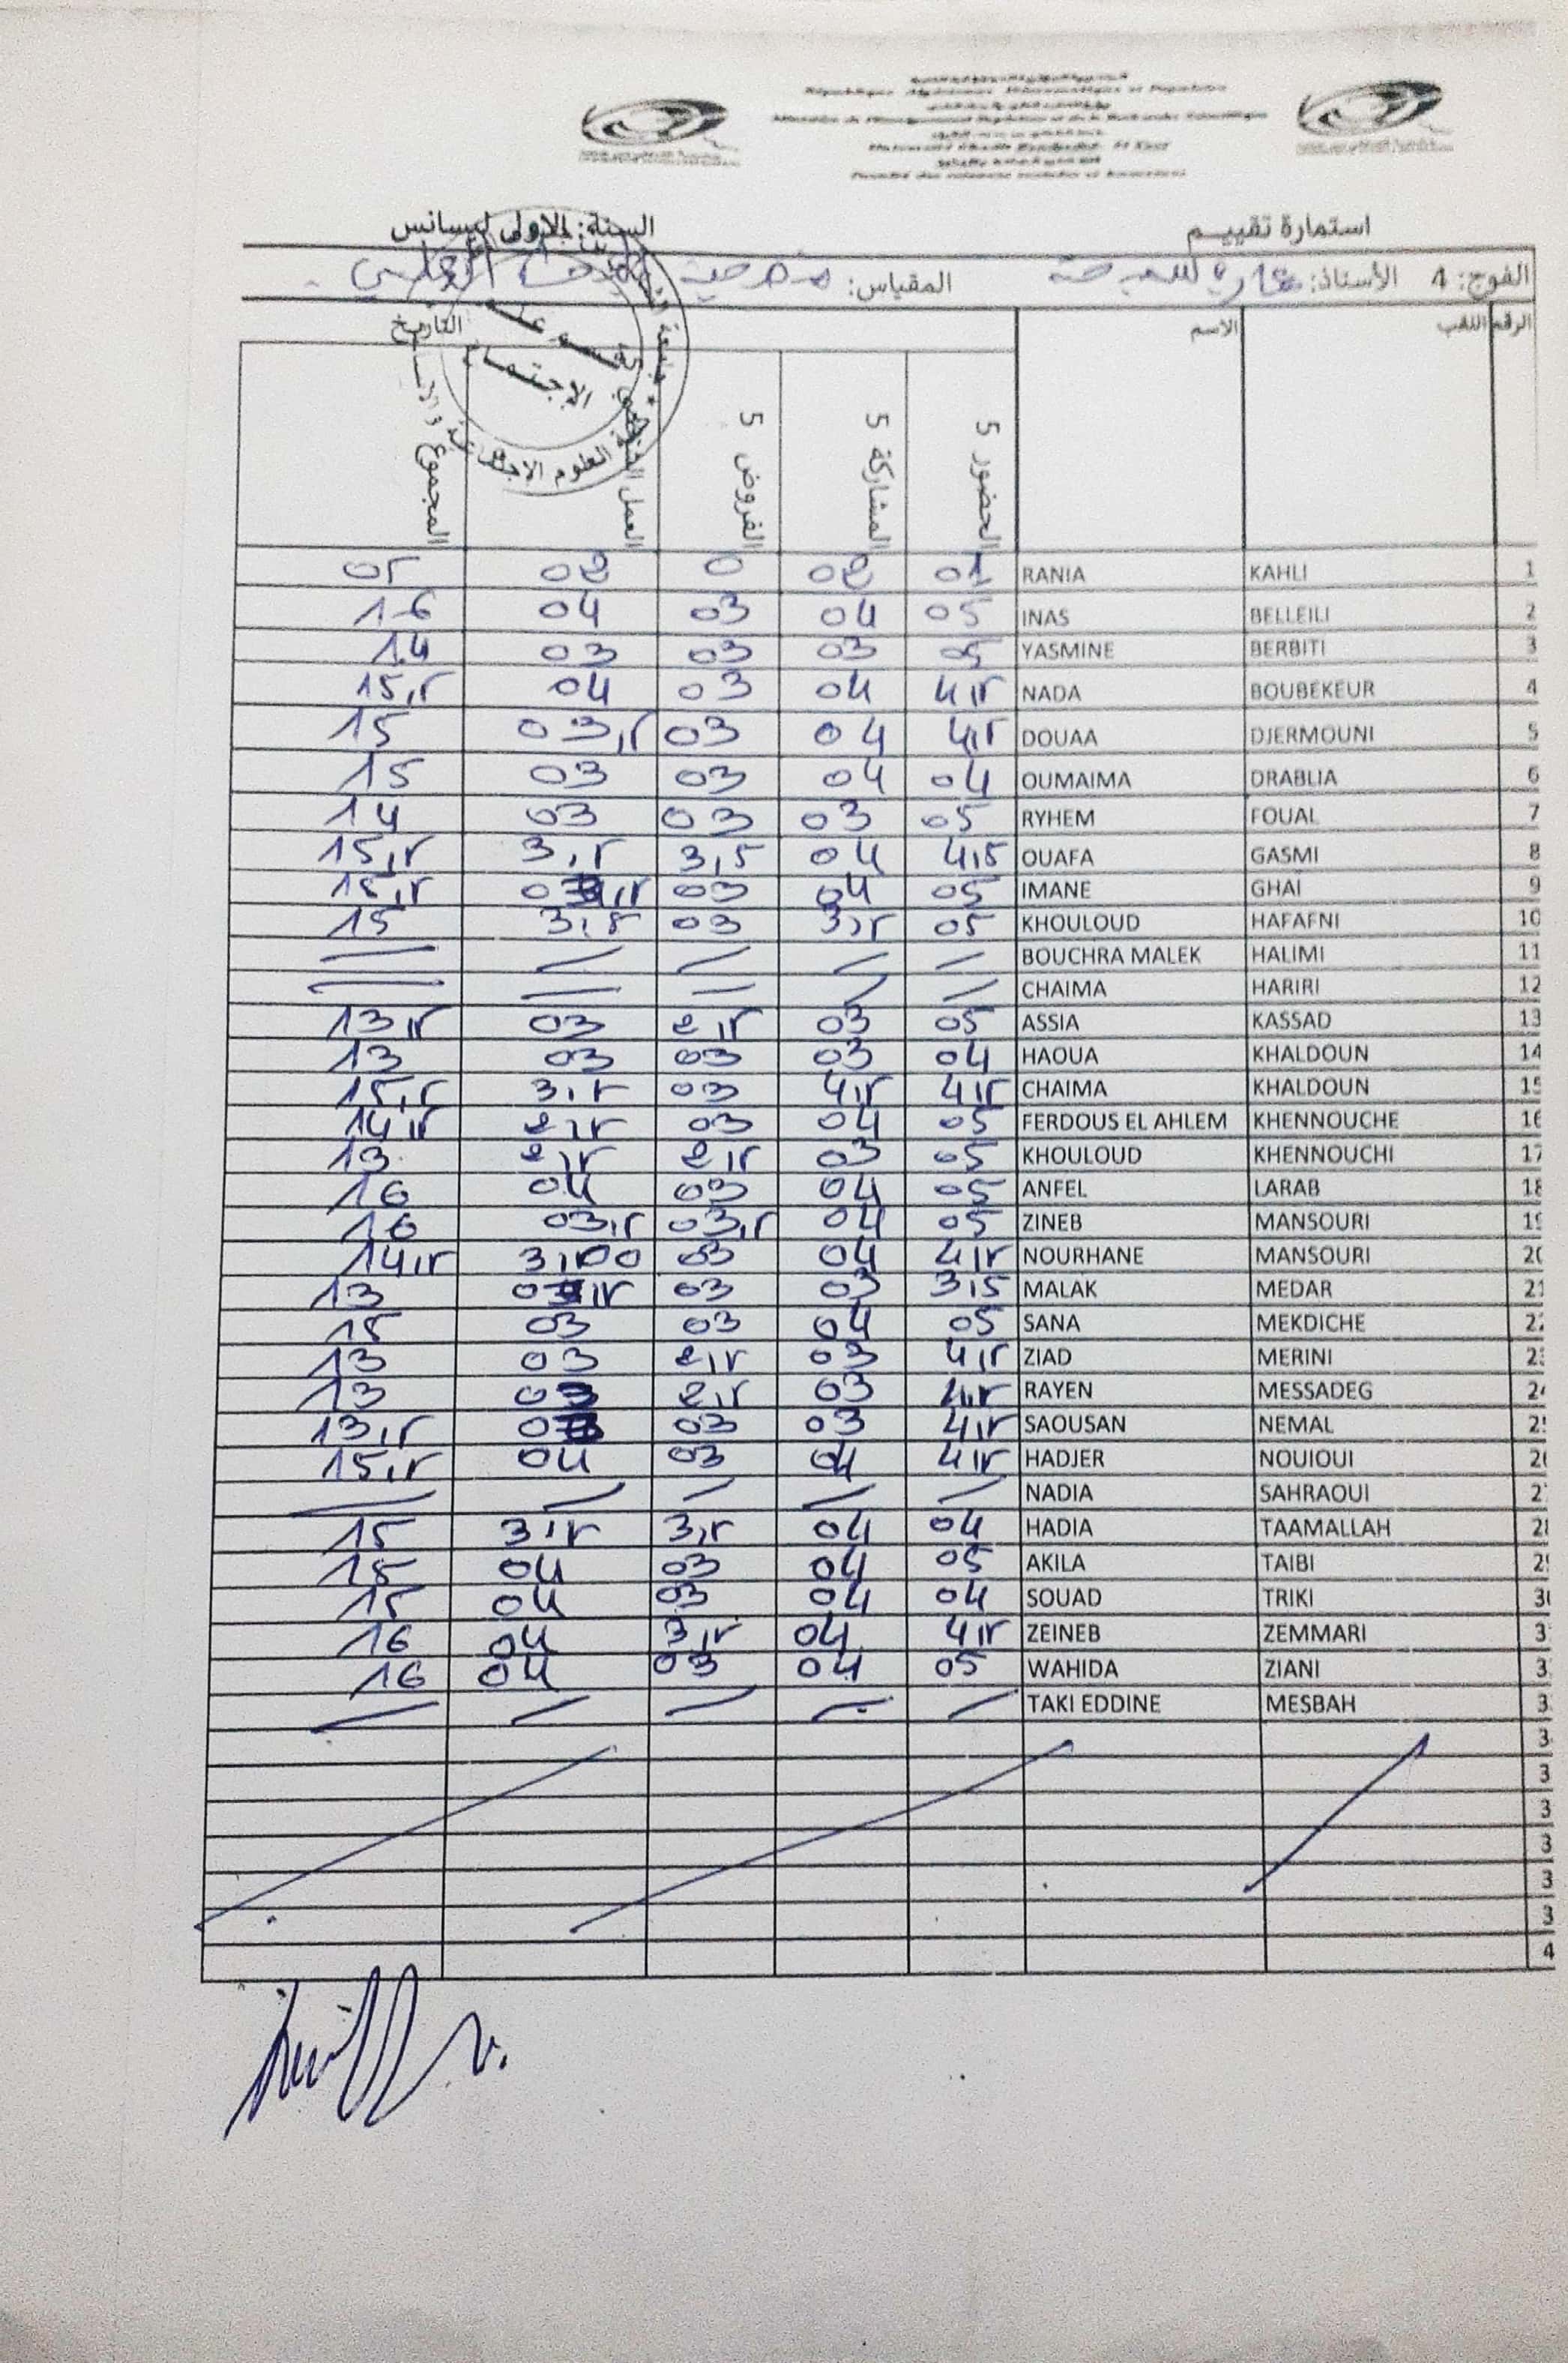 République Algérienne Démocratique et Populaire
استمارة تقييم السنة: الاولى ليسانس
الفوج: 4 الأستاذ: المقياس:
الرقم اللقب الاسم التاريخ
الحضور 5 المشاركة 5 الفروض 5 العمل المجموع
1 KAHLI RANIA 01 02 0 02 05
2 BELLEILI INAS 05 04 03 04 16
3 BERBITI YASMINE 05 03 03 03 14
4 BOUBEKEUR NADA 4,5 04 03 04 15,5
5 DJERMOUNI DOUAA 4,5 04 03 03,5 15
6 DRABLIA OUMAIMA 04 04 03 03 15
7 FOUAL RYHEM 05 03 03 03 14
8 GASMI OUAFA 4,5 04 3,5 3,5 15,5
9 GHAI IMANE 05 04 03 15,5
10 HAFAFNI KHOULOUD 05 3,5 03 3,5 15
11 HALIMI BOUCHRA MALEK
12 HARIRI CHAIMA
13 KASSAD ASSIA 05 03 2,5 03 13,5
14 KHALDOUN HAOUA 04 03 03 03 13
15 KHALDOUN CHAIMA 4,5 4,5 03 3,5 15,5
16 KHENNOUCHE FERDOUS EL AHLEM 05 04 03 2,5 14,5
17 KHENNOUCHI KHOULOUD 05 03 2,5 2,5 13
18 LARAB ANFEL 05 04 03 04 16
19 MANSOURI ZINEB 05 04 03,5 03,5 16
20 MANSOURI NOURHANE 4,5 04 03 3,00 14,5
21 MEDAR MALAK 3,5 03 03 13
22 MEKDICHE SANA 05 04 03 03 15
23 MERINI ZIAD 4,5 03 2,5 03 13
24 MESSADEG RAYEN 4,5 03 2,5 03 13
25 NEMAL SAOUSAN 4,5 03 03 03 13,5
26 NOUIOUI HADJER 4,5 04 03 04 15,5
27 SAHRAOUI NADIA
28 TAAMALLAH HADIA 04 04 3,5 3,5 15
29 TAIBI AKILA 05 04 03 04 15
30 TRIKI SOUAD 04 04 03 04 15
3 ZEMMARI ZEINEB 4,5 04 3,5 04 16
3 ZIANI WAHIDA 05 04 03 04 16
3 MESBAH TAKI EDDINE
3
3
3
3
3
3
4